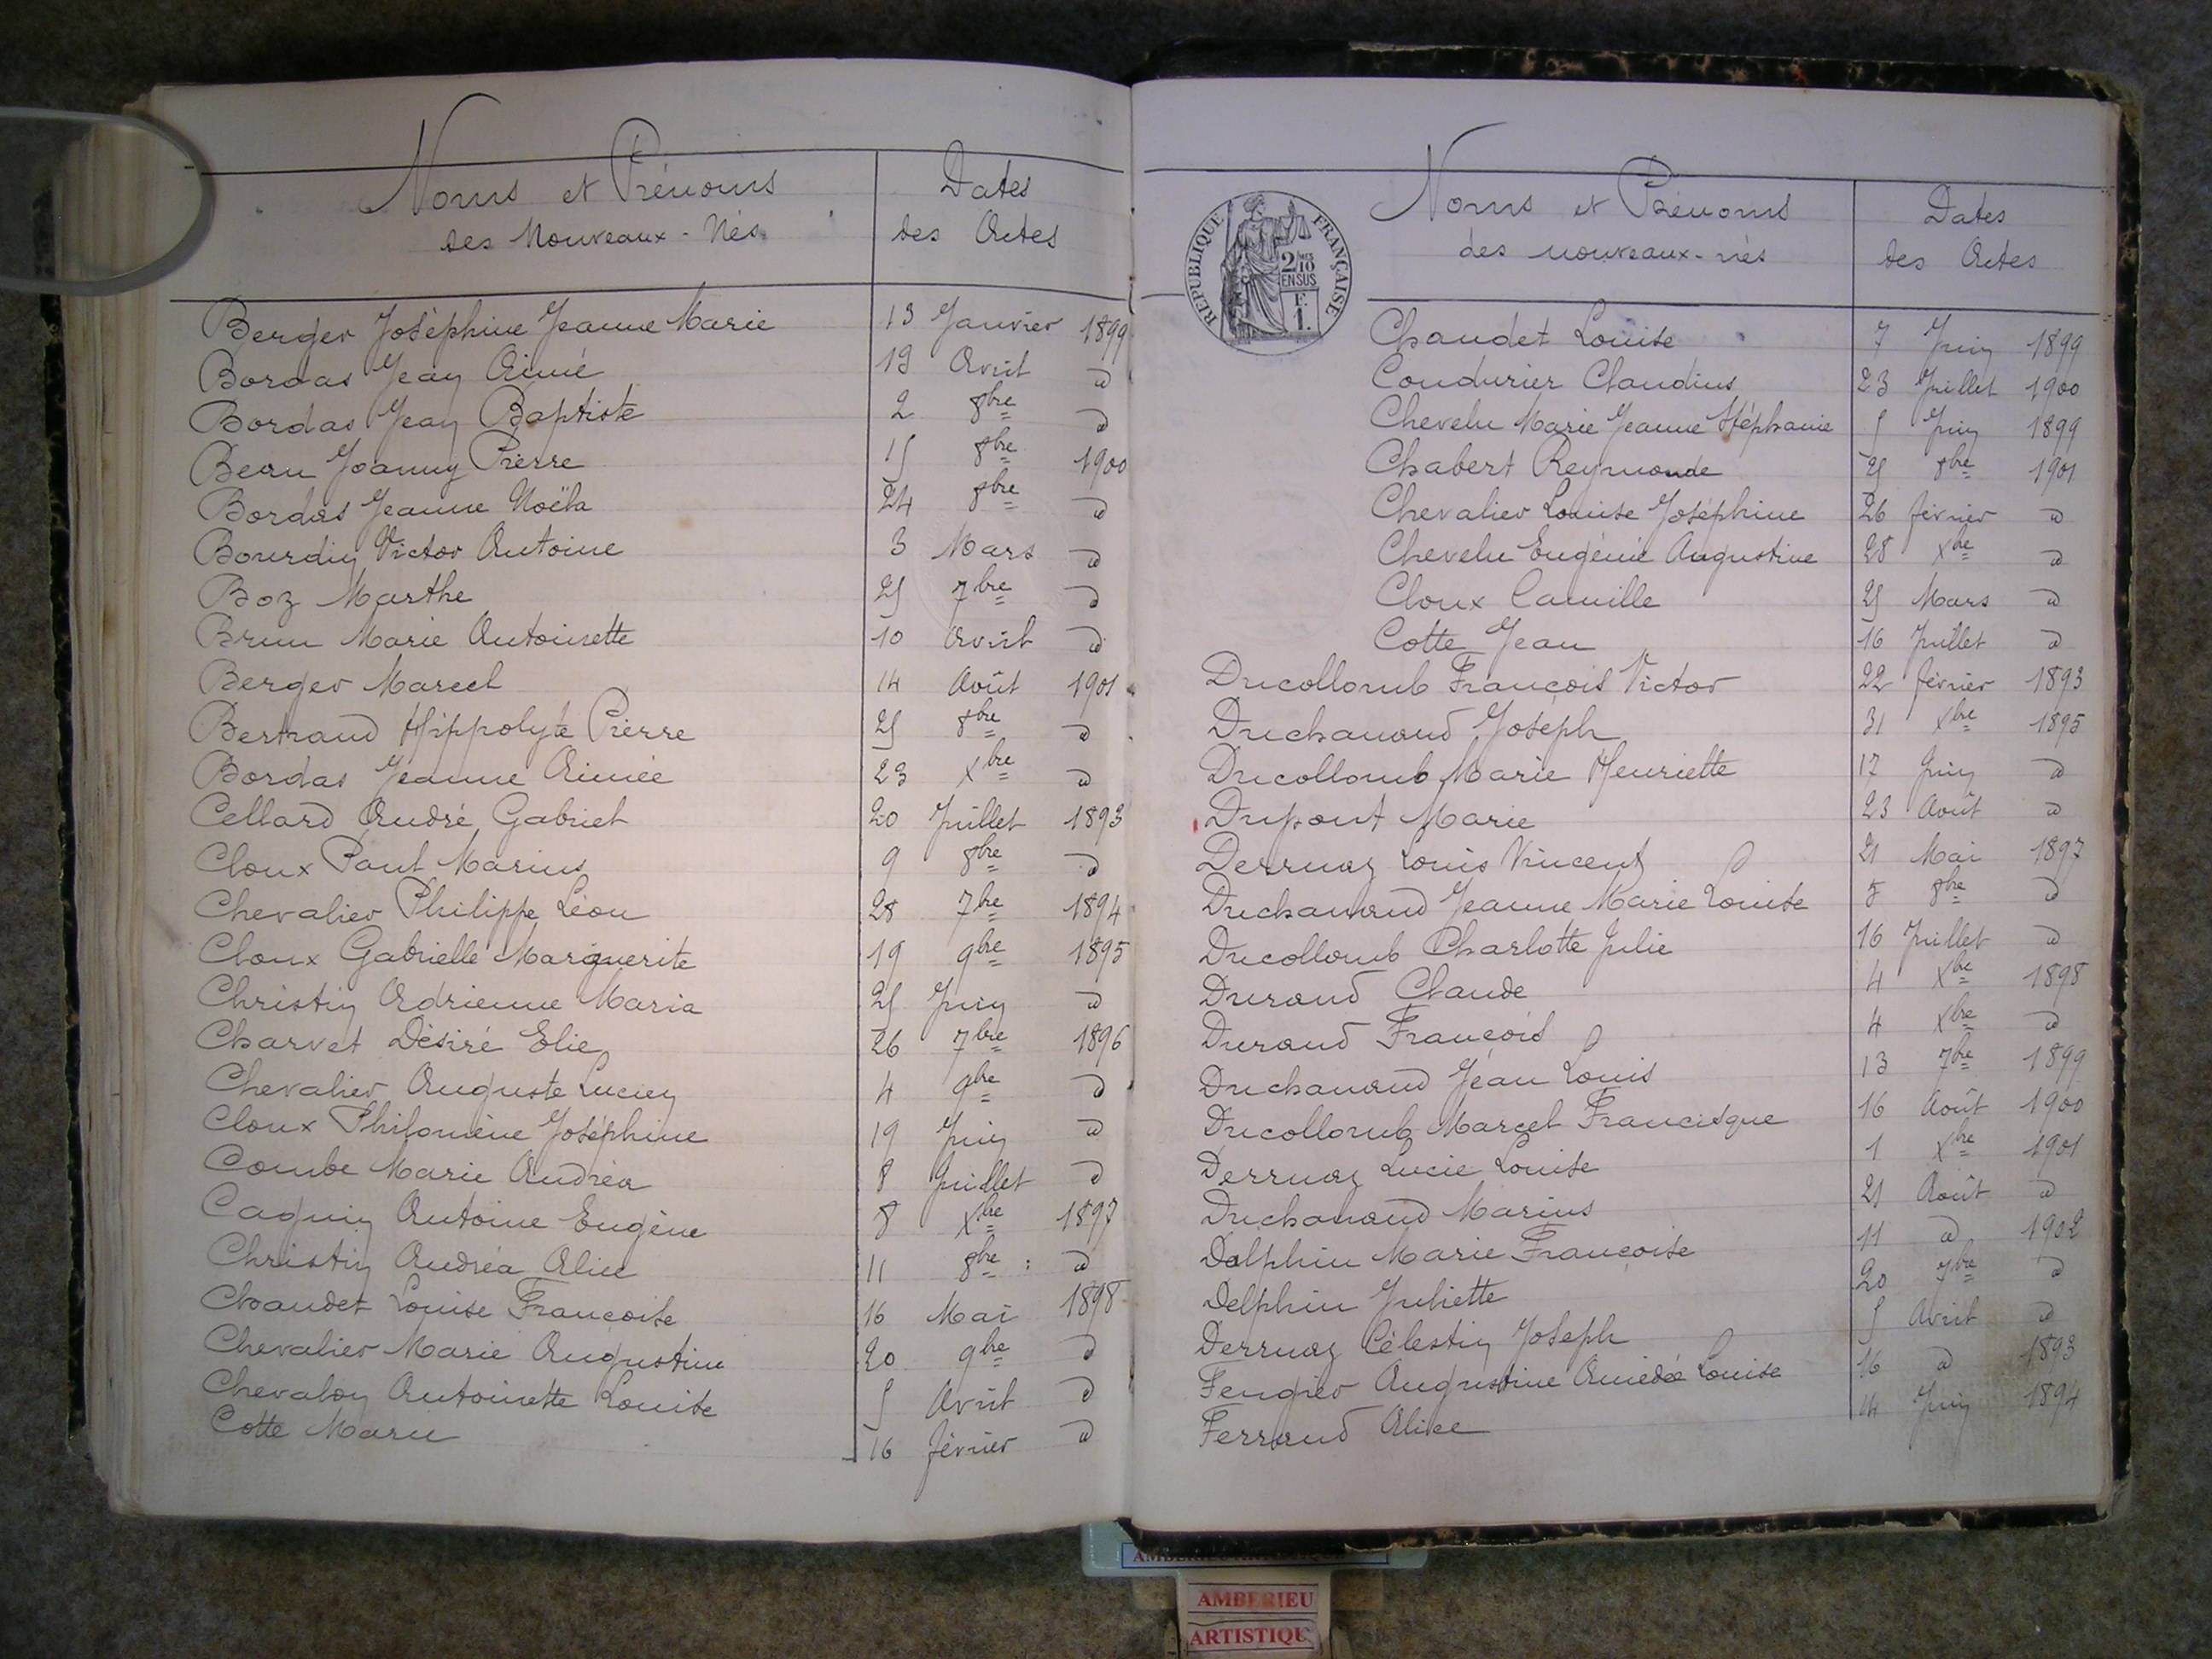 Noms et Prénoms Dates
des Nouveaux-Nés des Actes
Berger Joséphine Jeanne Marie 13 Janvier 1899
Bordas Jean Aimé 19 Avril d
Bordas Jean Baptiste 2 8bre d
Beau Joanny Pierre 15 8bre 1900
Bordas Jeanne Noëla 24 8bre d
Bourdin Victor Antoine 3 Mars d
Boz Marthe 25 7bre d
Brun Marie Antoinette 10 Avril d
Berger Marcel 14 Août 1901
Bertrand Hippolyte Pierre 25 8bre d
Bordas Jeanne Aimée 23 Xbre d
Cellard André Gabriel 20 Juillet 1893
Cloux Paul Marius 9 8bre d
Chevalier Philippe Léon 28 7bre 1894
Cloux Gabrielle Marguerite 19 9bre 1895
Christin Adrienne Maria 25 Juin d
Charvet Désiré Elie 26 7bre 1896
Chevalier Auguste Lucien 4 9bre d
Cloux Philomène Joséphine 19 Juin d
Combe Marie Andréa 8 Juillet d
Caquin Antoine Eugène 8 Xbre 1897
Christin Andréa Alice 11 8bre d
Chaudet Louise Françoise 16 Mai 1898
Chevalier Marie Augustine 20 9bre d
Chevalon Antoinette Louise 5 Avril d
Cotte Marie 16 février d
Noms et Prénoms Dates
des nouveaux-nés des Actes
REPUBLIQUE FRANÇAISE
2 MES 10
EN SUS
F.
1.
Chaudet Louise 7 Juin 1899
Coudurier Claudius 23 Juillet 1900
Chevelu Marie Jeanne Stéphanie 5 Juin 1899
Chabert Reymonde 25 8bre 1901
Chevalier Louise Joséphine 26 février d
Chevelu Eugénie Augustine 28 Xbre d
Cloux Camille 25 Mars d
Cotte Jean 16 Juillet d
Ducollomb François Victor 22 février 1893
Duchanaud Joseph 31 Xbre 1895
Ducollomb Marie Henriette 17 Juin d
Dupont Marie 23 Août d
Derruaz Louis Vincent 21 Mai 1897
Duchanaud Jeanne Marie Louise 8 8bre d
Ducollomb Charlotte Julie 16 Juillet d
Durand Claude 4 Xbre 1898
Durand François 4 Xbre d
Duchanaud Jean Louis 13 7bre 1899
Ducollomb Marcel Francisque 16 Août 1900
Derruaz Lucie Louise 1 Xbre 1901
Duchanaud Marius 21 Août d
Dalphin Marie Françoise 11 d 1902
Delphin Juliette 20 7bre d
Derruaz Célestin Joseph 5 Avril d
Feugier Augustine Amédée Louise 16 d 1893
Ferrand Alice 14 Juin 1894
AMBERIEU
ARTISTIQU